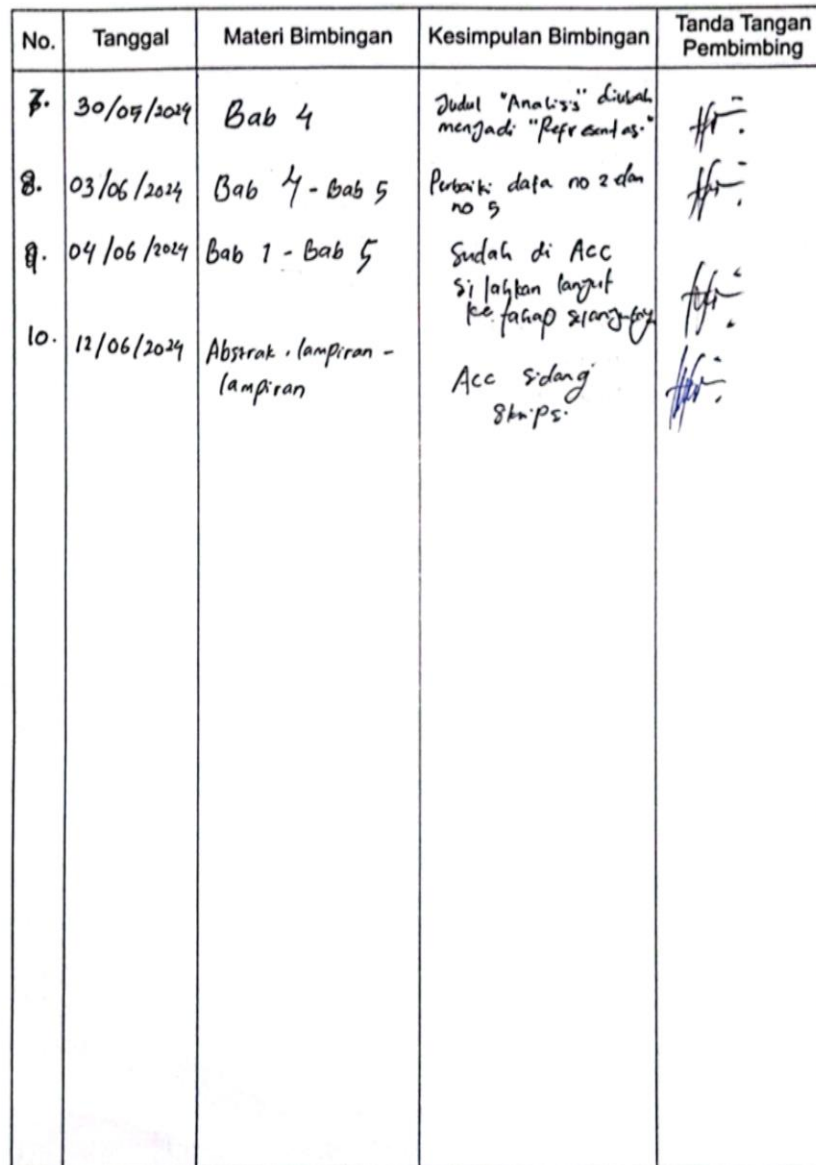 No. Tanggal Materi Bimbingan Kesimpulan Bimbingan Tanda Tangan Pembimbing
7. 30/05/2024 Bab 4 Judul "Analisis" diubah
menjadi "Refresentasi"
8. 03/06/2024 Bab 4 - Bab 5 Perbaiki data no 2 dan
no 5
9. 04/06/2024 Bab 1 - Bab 5 Sudah di Acc
silahkan lanjut
ke tahap selanjutnya
10. 12/06/2024 Abstrak, lampiran -
lampiran
Acc sidang
skripsi